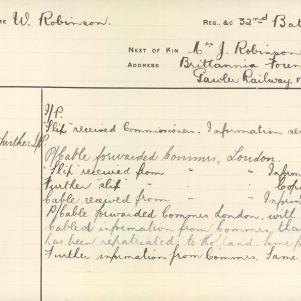 W. Robinson. REG. &C 32nd Bat
NEXT OF KIN Mrs J. Robinson
ADDRESS Brittannia Foun
Gawler Railway, F
"Slip" received Commissioner. Information
Further
P/Cable forwarded Commrs, London.
"Slip" received from " Infor
Further "slip" " " Cop
Cable received from " Infor
P/Cable forwarded Commrs London, with
Cabled information from Commrs, tha
has been repatriated to Holland. Same
Further information from Commrs. Same